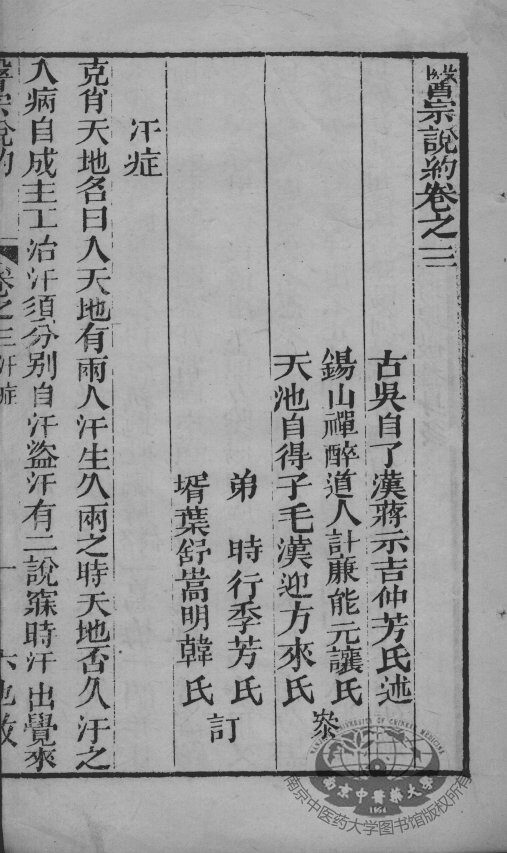 醫宗說約卷之三
古吳自了漢蔣示吉仲芳氏述
錫山禪醉道人計廉能元讓氏
天池自得子毛漢迎方來氏
叅
弟 時行季芳氏
壻葉舒嵩明韓氏
訂
汗症
克肖天地名曰人天地有雨人汗生久雨之時天地否久汗之
人病自成主工治汗須分别自汗盜汗有二說寐時汗出覺來
醫宗說約
卷之三汗症
一
NANJING UNIVERSITY OF CHINESE MEDICINE
南京中醫藥大學
1954
南京中医药大学图书馆版权所有